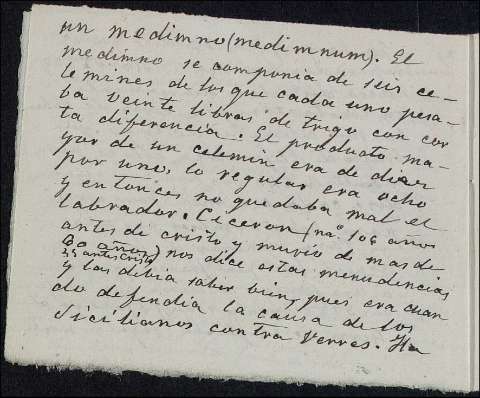 un medimno (medimnum). El
medimno se componia de seis ce-
lemines de los que cada uno pesa-
ba veinte libras de trigo con cor
ta diferencia. El producto ma-
yor de un celemin era de diez
por uno, lo regular era ocho
y entonces no quedaba mal el
labrador. Ciceron (na.º 106 años
antes de cristo y murió de mas de
60 años) nos dice estas menudencias
43 antes Cristo
y las debia saber bien, pues era cuan
do defendia la causa de los
Sicilianos contra Verres. Ha